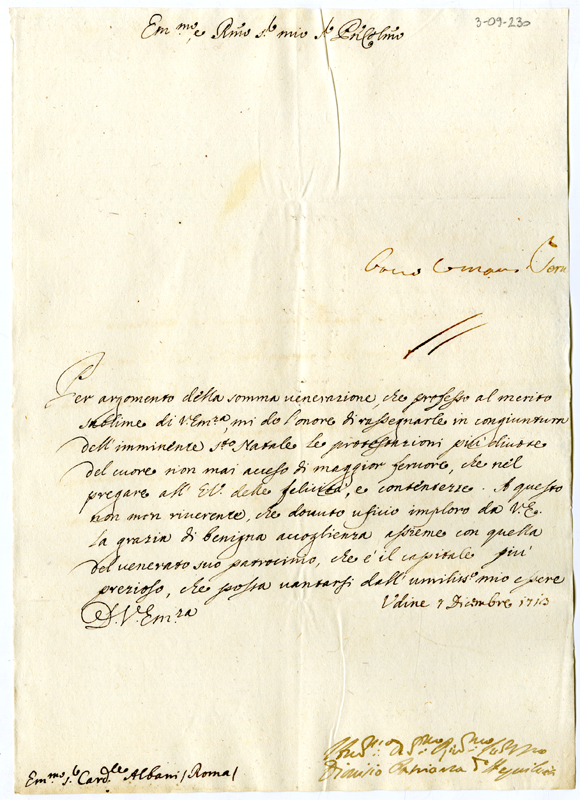 3-09-230
Em.mo e Rmo S.r mio S.r P̃rn Colmo
Per argomento della somma venerazione, che professo al merito
sublime di V. Em.za, mi do l'onore di rassegnarle in congiuntura
dell'imminente S.to Natale le protestazioni più divote
del cuore non mai acceso di maggior fervore, che nel
pregare all' EV. delle felicità, e contentezze. A questo
non men riverente, che dovuto uficio imploro da V.E.
la grazia di benigna accoglienza assieme con quella
del venerato suo patrocinio, che è il capitale più
prezioso, che possa vantarsi dall' umiliss.o mio essere
Di V. Em.za
Udine 7 Dicembre 1713
Dionisio Patriarca d'Aquileia
Em.mo S.r Card.le Albani /Roma/